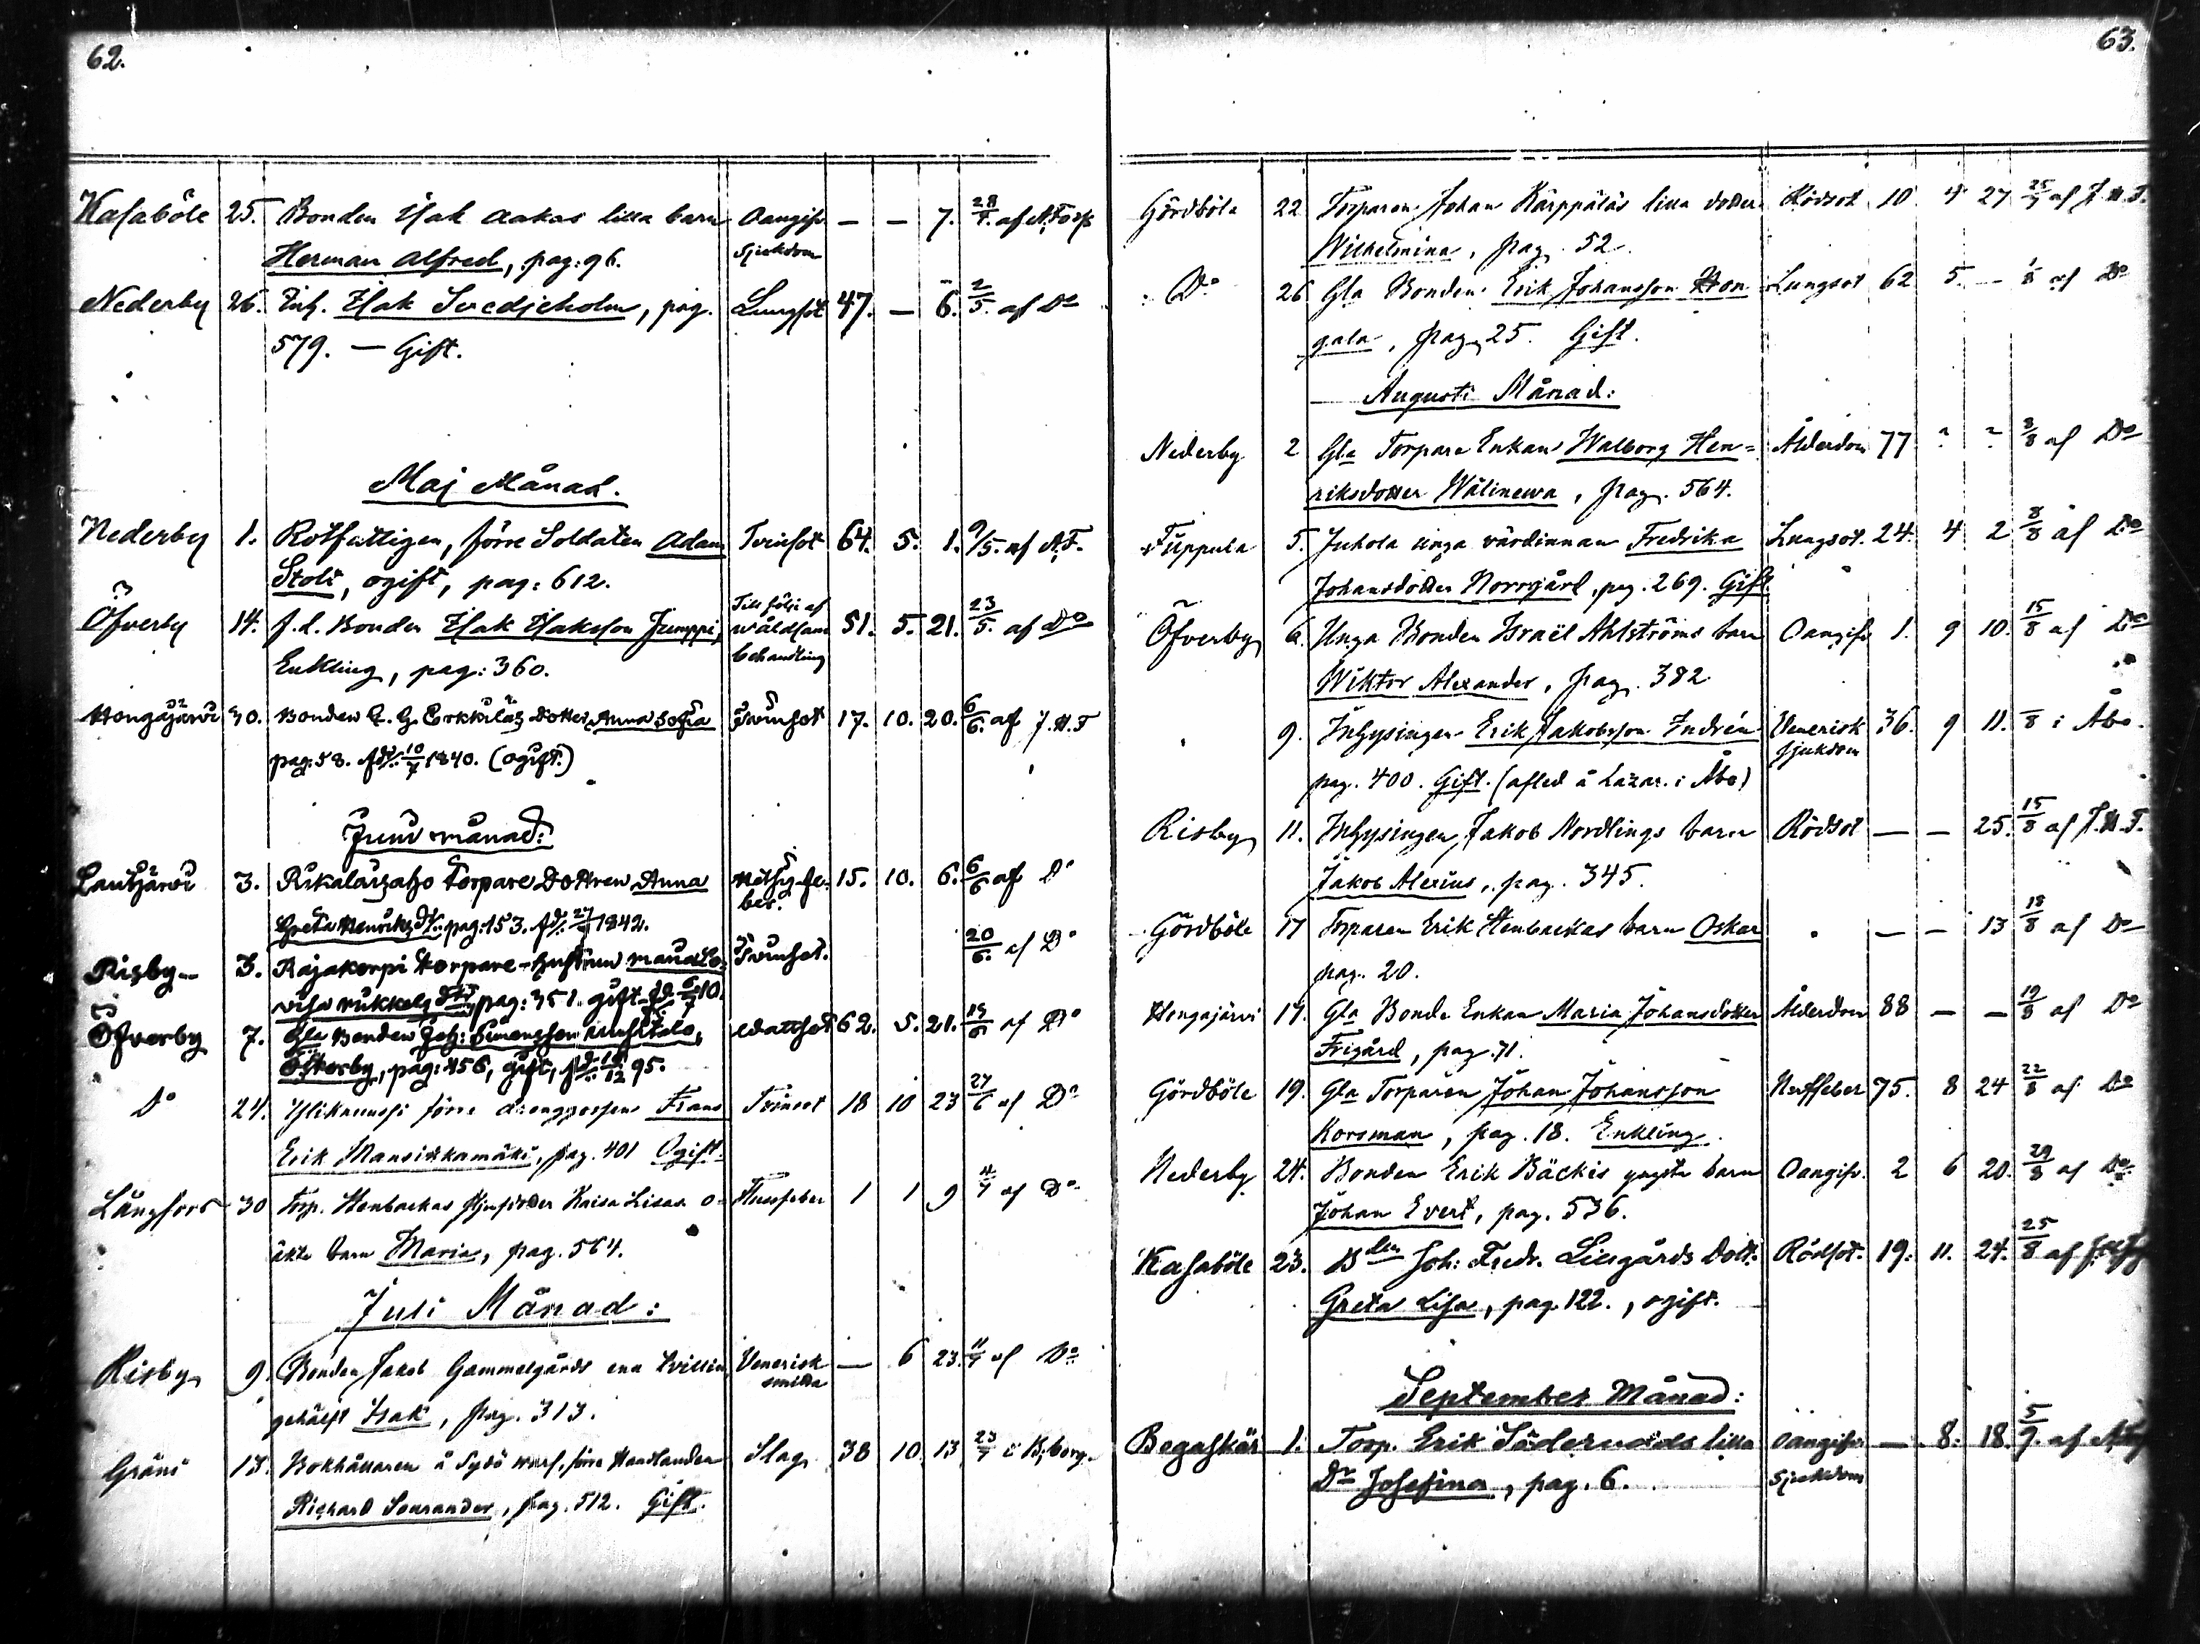 62.
Kasaböle 25. Bonden Isak Aakas lilla barn Oangifv — — 7. 28/4. af N. Forss
Herman Alfred, pag: 96. Sjukdom
Nederby 26. Inh. Isak Svedjeholm, pag. Lungsot 47. — 6. 2/5. af Do
579. — Gift.
Maj Månad.
Nederby 1. Rotfattigen, förre Soldaten Adam Tvinsot 64. 5. 1. 9/5. af
Stolt, ogift, pag: 612.
Öfverby 14. f.d. Bonden Isak Isaksson Jumppi, Till följe af våldsam behandling 51. 5. 21. 23/5. af Do
Enkling, pag: 360.
Hongajärvi 30. Bonden Erkkiläs dotter Anna Sofia Tvinsot 17. 10. 20. 6/6. af J. H. T
pag: 58. fdd. 10/7 1840. (ogift.)
Juni månad:
Lautjärvi 3. Torpare Dottren Anna feber. 15. 10. 6. 6/6 af Do
Greta Henriksdr. pag: 153. fdd. 1842.
Risby 3. Rajakorpi torpare-hustrun Maria Lo- Tvinsot. 20/6. af Do
visa Mikkelsdr, pag: 351. gift
Öfverby 7. Gla Bonden Joh: Simonsson Wattsot 62. 5. 21. 19/6 af Do
pag: 456, gift, 95.
Do 24. förre drengpojken Frans Tvinsot 18 10 23 27/6 af Do
Erik Mansikkamäki, pag. 401 Ogift.
Långfors 30 Torp. Stenbackas Kaisa Lisas o- 1 1 9 4/7 af Do
äkta barn Maria, pag. 564.
Juli Månad:
Risby 9. Bonden Jakob Gammelgårds ena tvillin Venerisk smitta — 6 23. 11/7 af Do
gehälft Isak, pag. 313.
13. Bokhållaren å förre Handlanden Slag 38 10 13 23/7 i B:borg.
Richard, pag. 512. Gift.
63.
Gördböle 22 Torparen Johan Kärppäläs lilla dotter Rödsot 10 4 27 25/7 af J. H. T.
Wilhelmina, pag. 52.
Do 26 Gla Bonden Erik Johansson Hon- Lungsot 62 5. — 1/8 af Do
gala, pag. 25. Gift.
Augusti Månad:
Nederby 2 Gla Torpare Enkan Walborg Hen= Ålderdom 77 ? ? 8/8 af Do
riksdotter Wälinewa, pag. 564.
Tuppula 5. Juhola unga värdinnan Fredrika Lungsot. 24. 4 2 8/8 af Do
Johansdotter Norrgård, pag. 269. Gift.
Öfverby 6. Unga Bonden Israël Ahlströms barn Oangifv. 1. 9 10. 15/8 af Do
Wiktor Alexander, pag. 382
9. Inhysingen Erik Jakobsson Indrén Venerisk sjukdom 36. 9 11. /8 i Åbo.
pag. 400. Gift. (afled å Lazar. i Åbo)
Risby 11. Inhysingen Jakob Nordlings barn Rödsot — — 25. 15/8 af J. H. T.
Jakob Alexius, pag. 345.
Gördböle 17 Torparen Erik Stenbackas barn Oskar — — 13 18/8 af Do
pag. 20.
Hongajärvi 17. Gla Bonde Enkan Maria Johansdotter Ålderdom 88 — — 19/8 af Do
Frigård, pag. 71.
Gördböle 19. Gla Torparen Johan Johansson Nerffeber 75. 8 24 22/8 af Do
Korsman, pag. 18. Enkling.
Nederby 24. Bonden Erik Bäckis yngsta barn Oangifv. 2 6 20. 29/8 af Do
Johan Evert, pag. 536.
Kasaböle 23. Bden Joh: Fredr. Lillgårds Dott: Rödsot. 19. 11. 24. 25/8 af
Greta Lisa, pag. 122., ogift.
September Månad:
Begaskär 1. Torp. Erik Söderudds lilla Oangifv — 8. 18. 5/9. af
Dr Josefina, pag. 6. Sjukdom